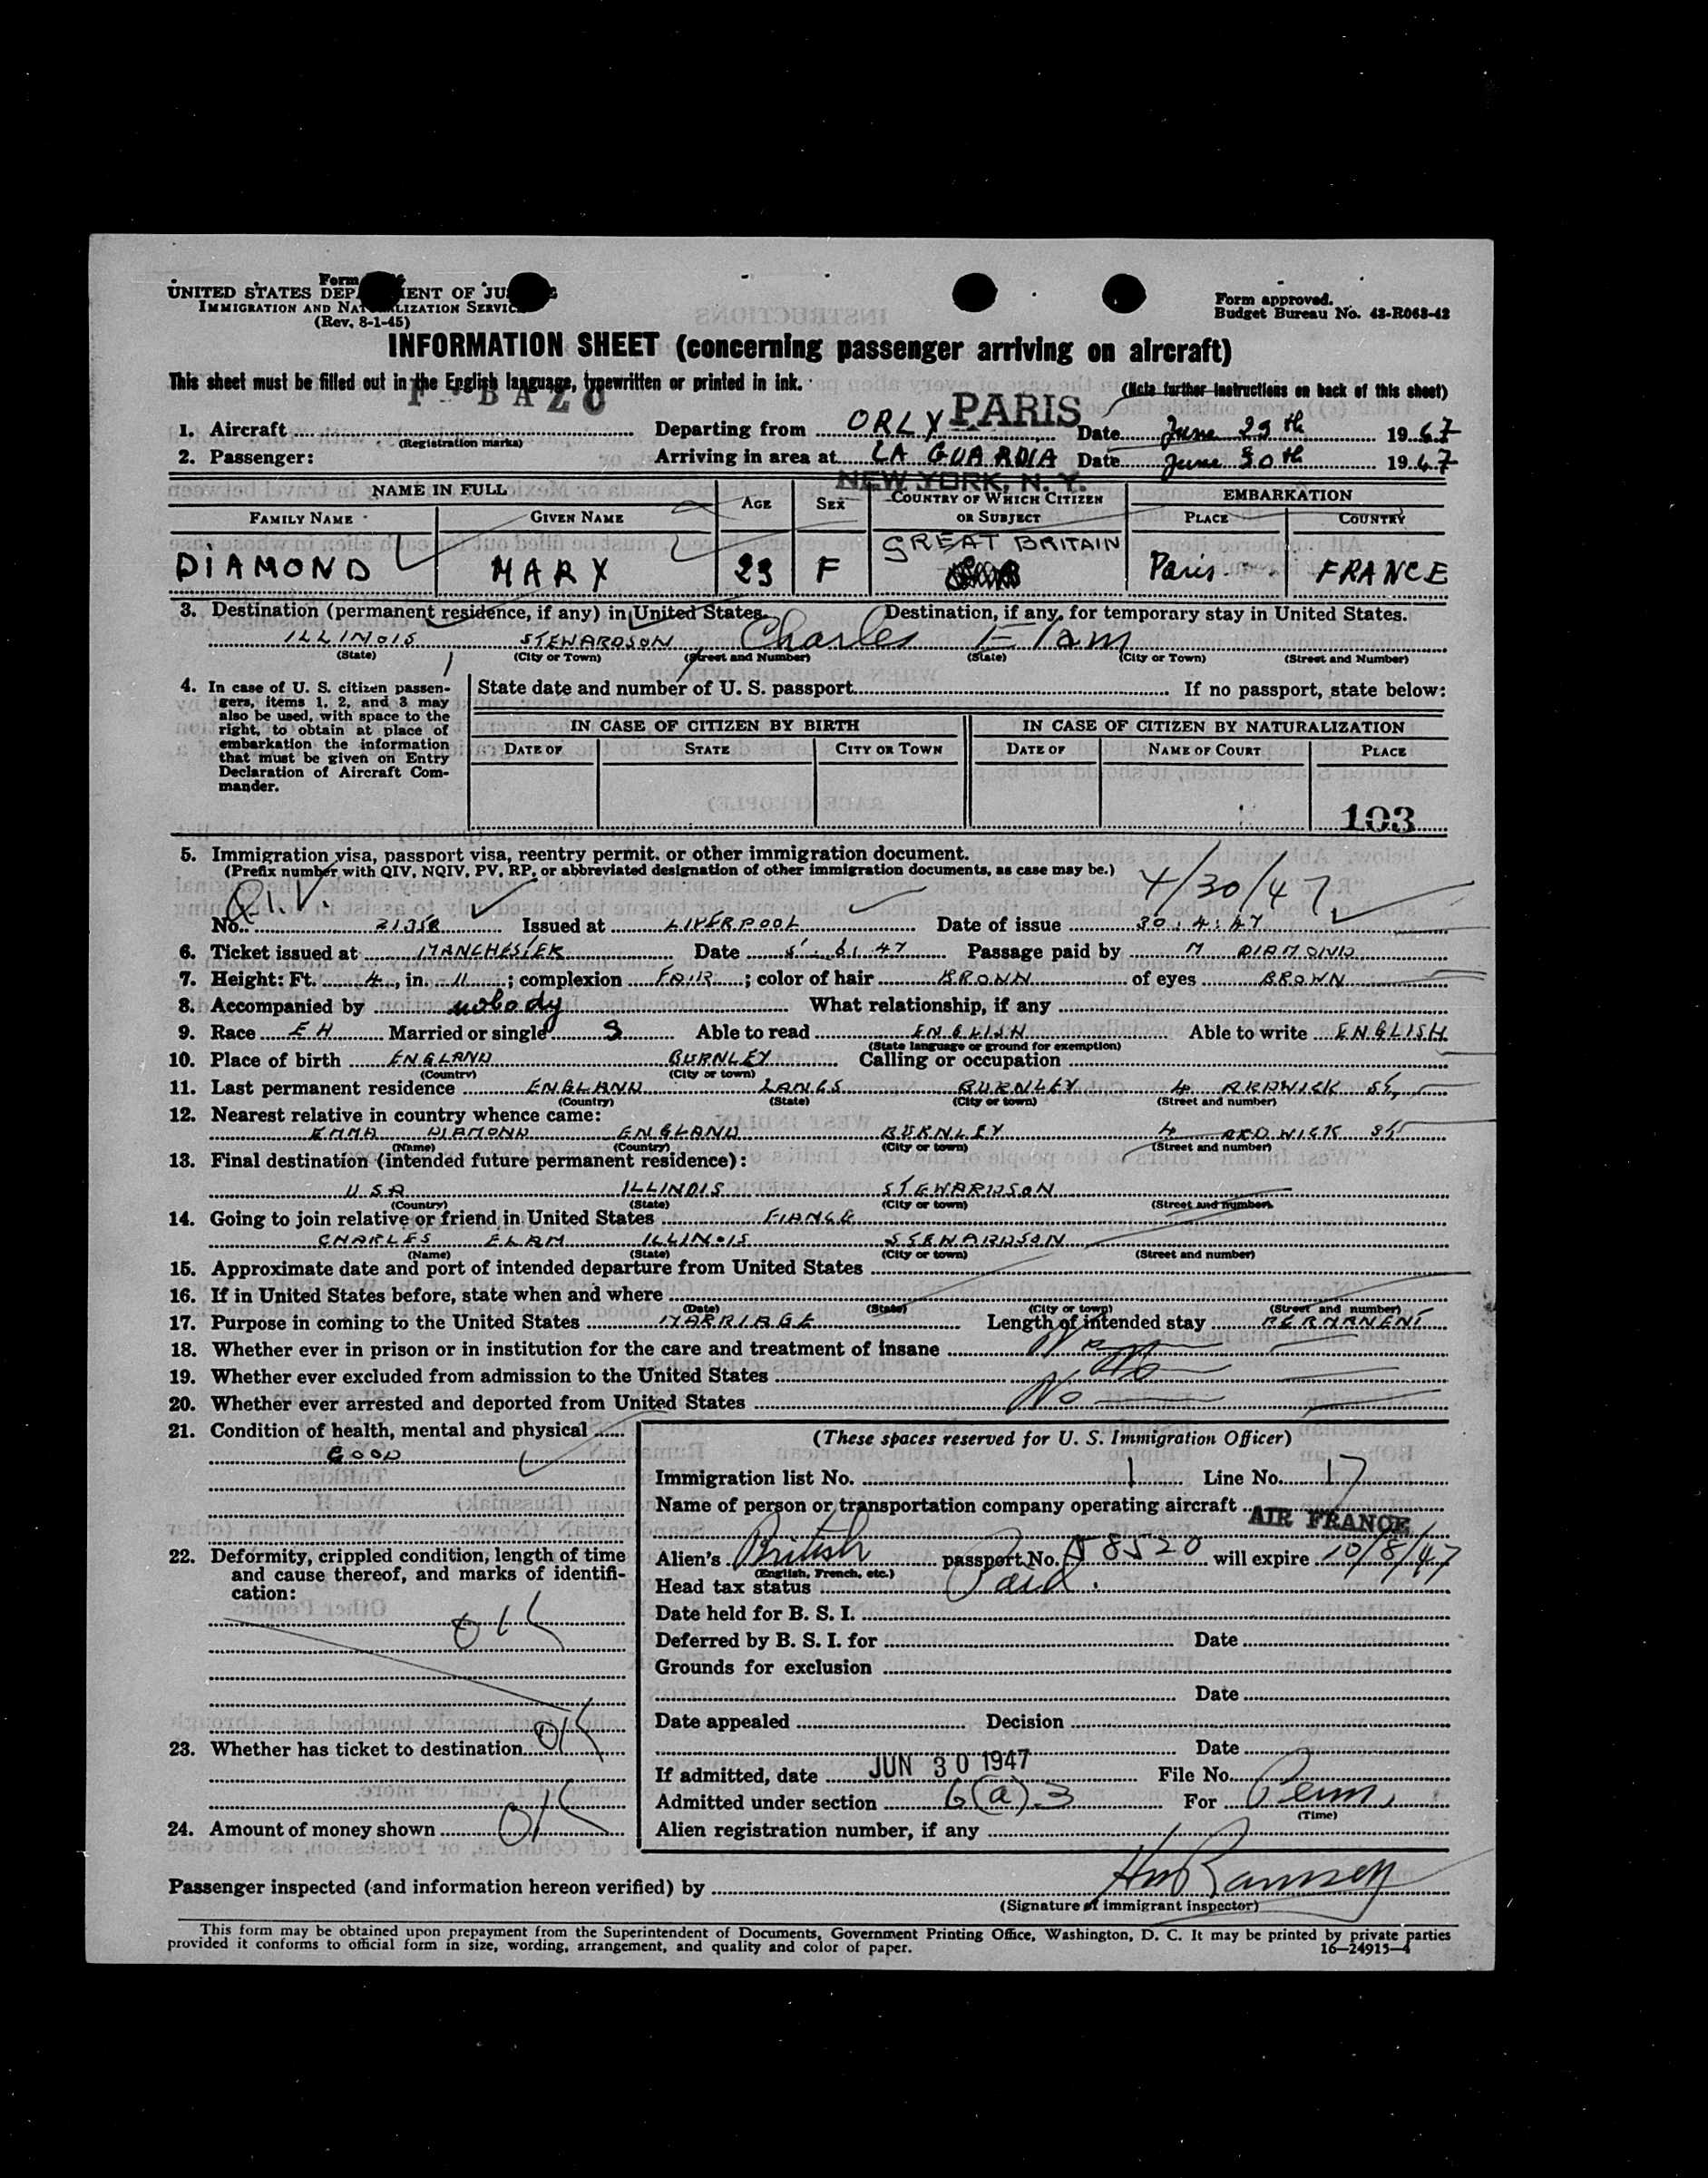 Form
UNITED STATES DEPARTMENT OF JUSTICE
IMMIGRATION AND NATURALIZATION SERVICE
(Rev. 8-1-45)
Form approved.
Budget Bureau No. 43-R063-42
INFORMATION SHEET (concerning passenger arriving on aircraft)
This sheet must be filled out in the English language, typewritten or printed in ink. (Note further instructions on back of this sheet)
F-BAZO
1. Aircraft (Registration marks) Departing from ORLY PARIS Date June 29th 1947
2. Passenger: Arriving in area at LA GUARDIA Date June 30th 1947
NEW YORK, N. Y.
NAME IN FULL AGE SEX COUNTRY OF WHICH CITIZEN OR SUBJECT EMBARKATION
FAMILY NAME GIVEN NAME PLACE COUNTRY
DIAMOND MARY 23 F GREAT BRITAIN Paris FRANCE
3. Destination (permanent residence, if any) in United States. Destination, if any, for temporary stay in United States.
ILLINOIS STEWARDSON Charles Elam
(State) (City or Town) (Street and Number) (State) (City or Town) (Street and Number)
4. In case of U. S. citizen passengers, items 1, 2, and 3 may also be used, with space to the right, to obtain at place of embarkation the information that must be given on Entry Declaration of Aircraft Commander.
State date and number of U. S. passport If no passport, state below:
IN CASE OF CITIZEN BY BIRTH IN CASE OF CITIZEN BY NATURALIZATION
DATE OF STATE CITY OR TOWN DATE OF NAME OF COURT PLACE
103
5. Immigration visa, passport visa, reentry permit, or other immigration document.
(Prefix number with QIV, NQIV, PV, RP, or abbreviated designation of other immigration documents, as case may be.) 4/30/47
Q.I.V.
No. 21358 Issued at LIVERPOOL Date of issue 30.4.47
6. Ticket issued at MANCHESTER Date 5.6.47 Passage paid by M DIAMOND
7. Height: Ft. 4, in. 11; complexion FAIR; color of hair BROWN of eyes BROWN
8. Accompanied by nobody What relationship, if any
9. Race EH Married or single S Able to read ENGLISH Able to write ENGLISH
(State language or ground for exemption)
10. Place of birth ENGLAND BURNLEY Calling or occupation
(Country) (City or town)
11. Last permanent residence ENGLAND LANCS BURNLEY 4 ARDWICK St.
(Country) (State) (City or town) (Street and number)
12. Nearest relative in country whence came:
EMMA DIAMOND ENGLAND BURNLEY 4 ARDWICK St
(Name) (Country) (City or town) (Street and number)
13. Final destination (intended future permanent residence):
USA ILLINOIS STEWARDSON
(Country) (State) (City or town) (Street and number)
14. Going to join relative or friend in United States FIANCE
CHARLES ELAM ILLINOIS STEWARDSON
(Name) (State) (City or town) (Street and number)
15. Approximate date and port of intended departure from United States
16. If in United States before, state when and where
(Date) (State) (City or town) (Street and number)
17. Purpose in coming to the United States MARRIAGE Length of intended stay PERMANENT
18. Whether ever in prison or in institution for the care and treatment of insane No
19. Whether ever excluded from admission to the United States No
20. Whether ever arrested and deported from United States No
21. Condition of health, mental and physical
GOOD
22. Deformity, crippled condition, length of time and cause thereof, and marks of identification:
OK
23. Whether has ticket to destination OK
24. Amount of money shown OK
(These spaces reserved for U. S. Immigration Officer)
Immigration list No. 1 Line No. 17
Name of person or transportation company operating aircraft
AIR FRANCE
Alien's British passport No. 58520 will expire 10/8/47
(English, French, etc.)
Head tax status Paid.
Date held for B. S. I.
Deferred by B. S. I. for Date
Grounds for exclusion
Date
Date appealed Decision
Date
If admitted, date JUN 30 1947 File No.
Admitted under section 6(a)3 For Perm.
(Time)
Alien registration number, if any
Passenger inspected (and information hereon verified) by Ramsey
(Signature of immigrant inspector)
This form may be obtained upon prepayment from the Superintendent of Documents, Government Printing Office, Washington, D. C. It may be printed by private parties
provided it conforms to official form in size, wording, arrangement, and quality and color of paper. 16—24915-4